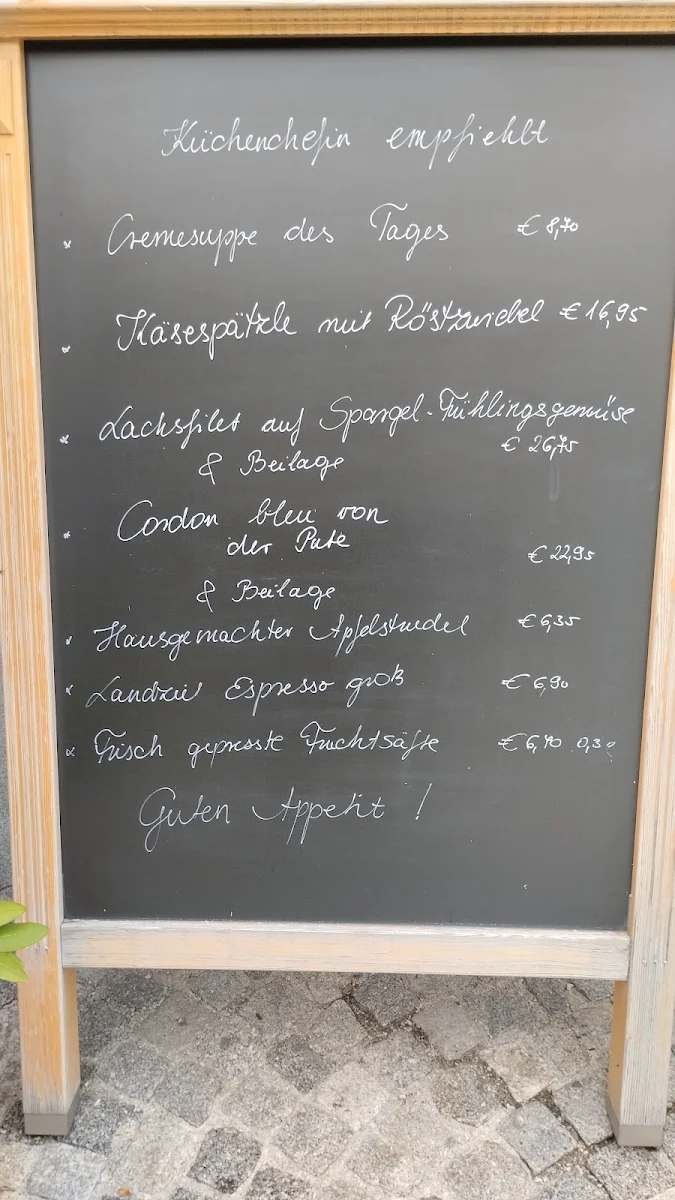 Küchenchefin empfiehlt
Cremesuppe des Tages € 8,70
Käsespätzle mit Röstzwiebel € 16,95
Lachsfilet auf Spargel-Frühlingsgemüse
€ 26,75
& Beilage
Cordon bleu von
der Pute
€ 22,95
& Beilage
Hausgemachter Apfelstrudel € 6,35
Espresso groß € 6,90
Frisch gepresste Fruchtsäfte € 6,40 0,3
Guten Appetit !